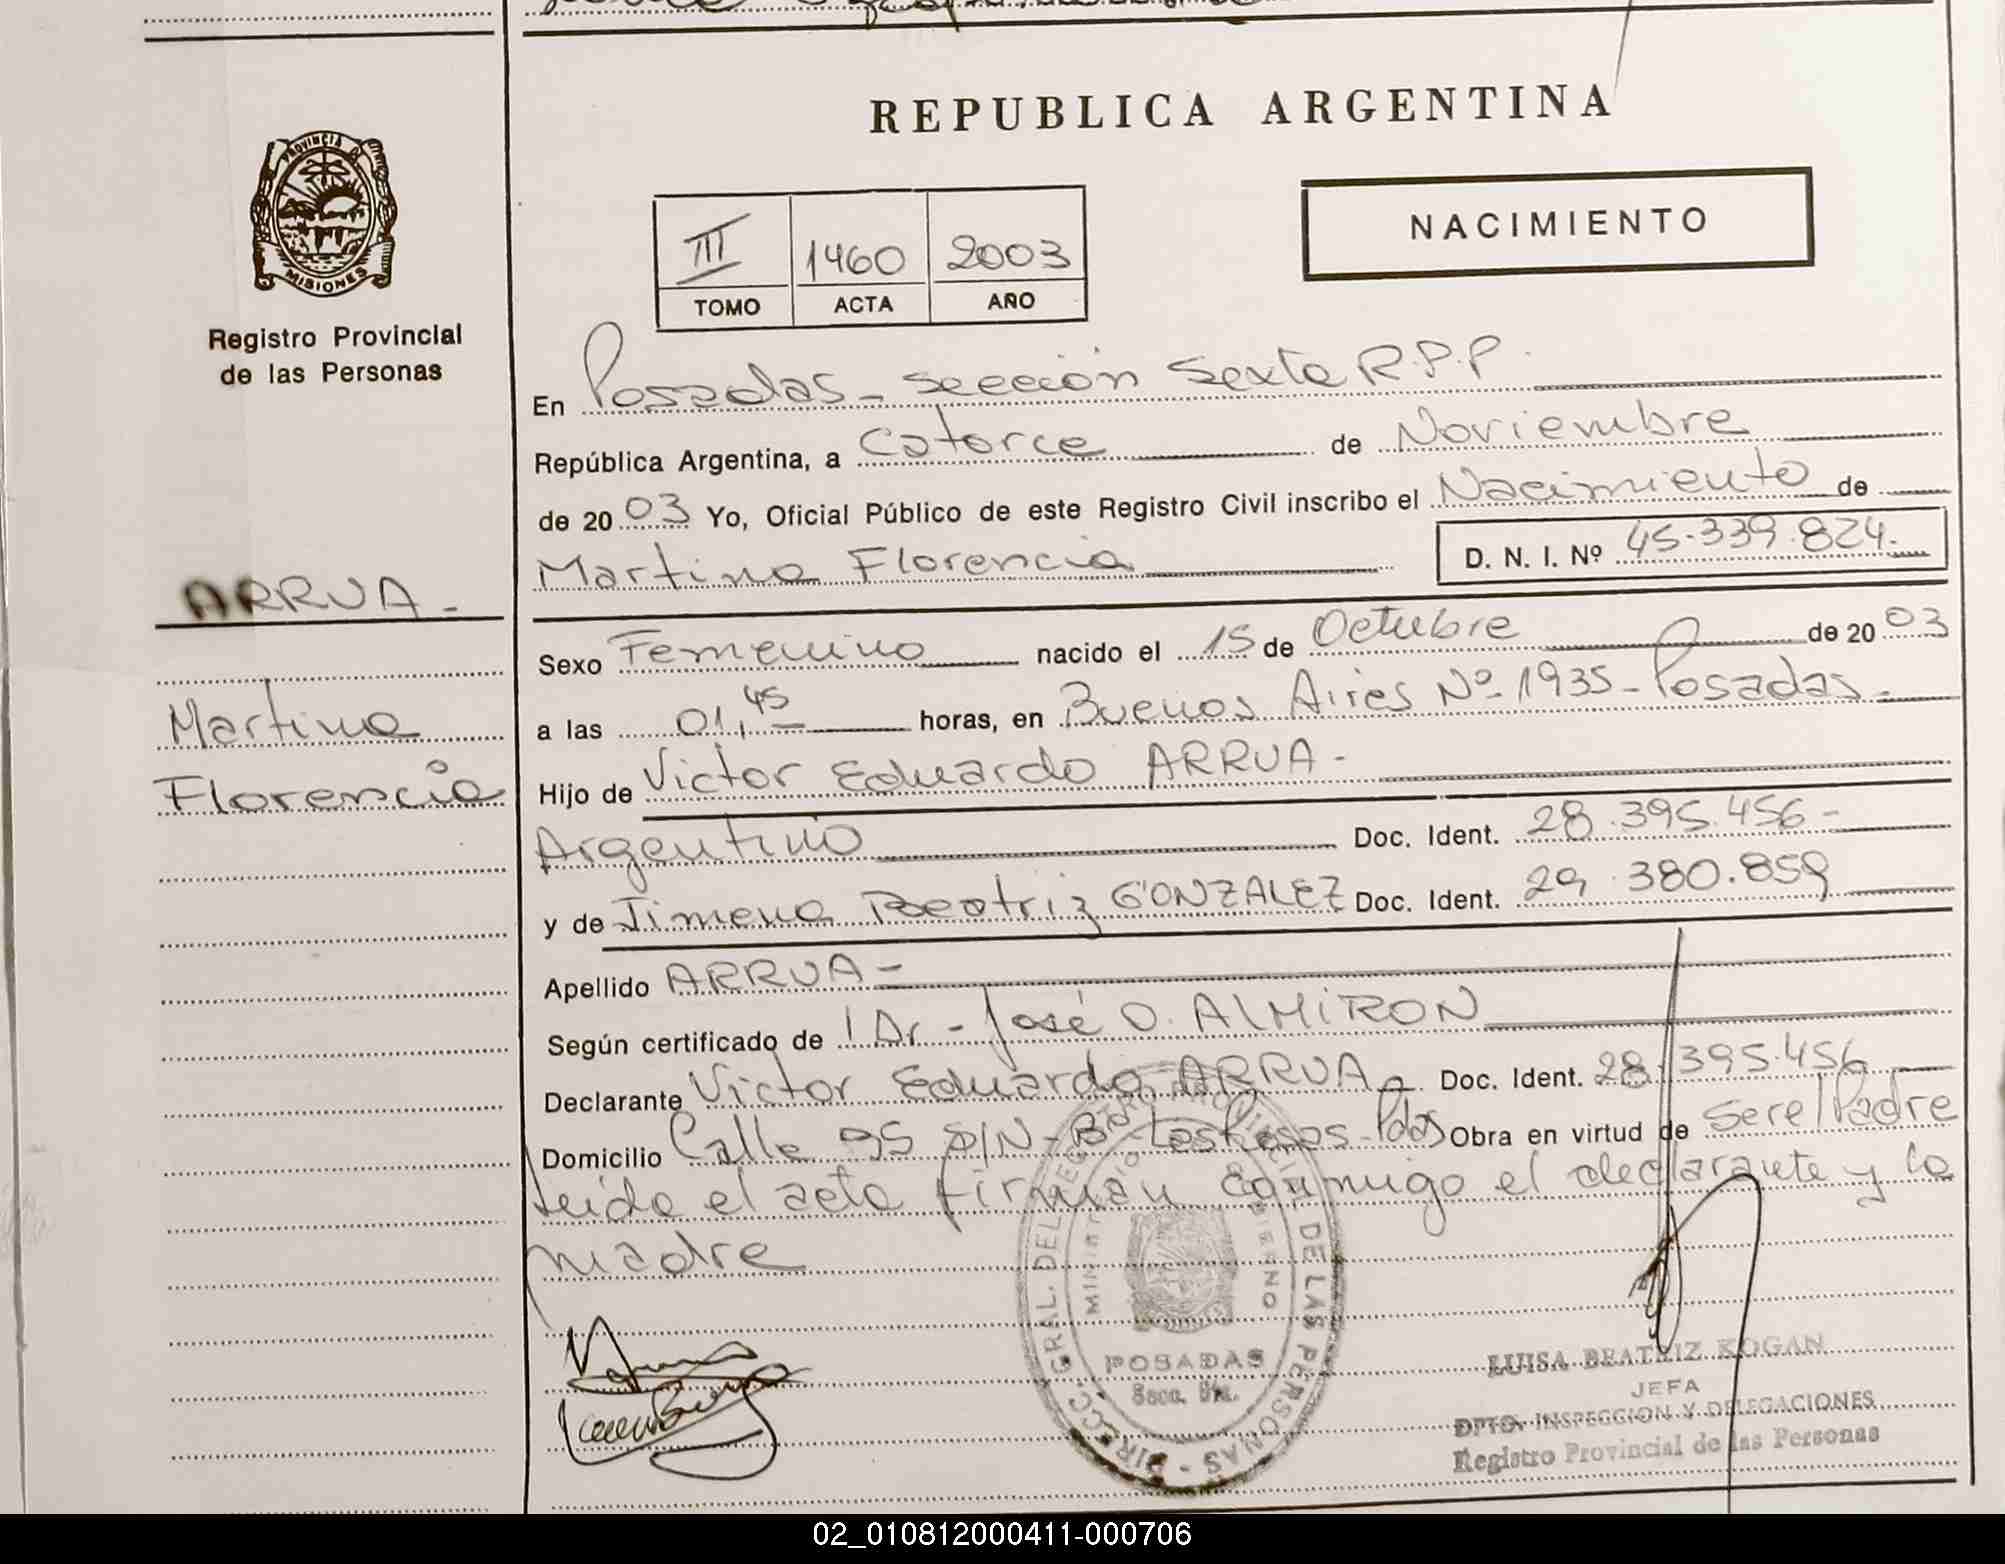 REPUBLICA ARGENTINA
PROVINCIA DE MISIONES
Registro Provincial
de las Personas
III 1460 2003
TOMO ACTA AÑO
NACIMIENTO
En Posadas - Sección Sexta R.P.P.
República Argentina, a Catorce de Noviembre
de 2003 Yo, Oficial Público de este Registro Civil inscribo el Nacimiento de
Martina Florencia D. N. I. Nº 45.339.824.
ARRUA -
Martina
Florencia
Sexo Femenino nacido el 15 de Octubre de 2003
a las 01,45 horas, en Buenos Aires Nº 1935 - Posadas -
Hijo de Victor Eduardo ARRUA -
Argentino Doc. Ident. 28.395.456 -
y de Jimena Beatriz GONZALEZ Doc. Ident. 29.380.859
Apellido ARRUA -
Según certificado de Dr - José O. ALMIRON
Declarante Victor Eduardo ARRUA Doc. Ident. 28.395.456
Domicilio Calle 95 S/N - Bº Las Rosas - Pdas Obra en virtud de ser el Padre
leida el acta firman conmigo el declarante y la
madre
DIRECC. GRAL. DEL REGISTRO PROVINCIAL DE LAS PERSONAS -
MINISTERIO GOBIERNO
POSADAS
Secc. 6ta.
LUISA BEATRIZ KOGAN
JEFA
DPTO. INSPECCION Y DELEGACIONES
Registro Provincial de las Personas
02_010812000411-000706